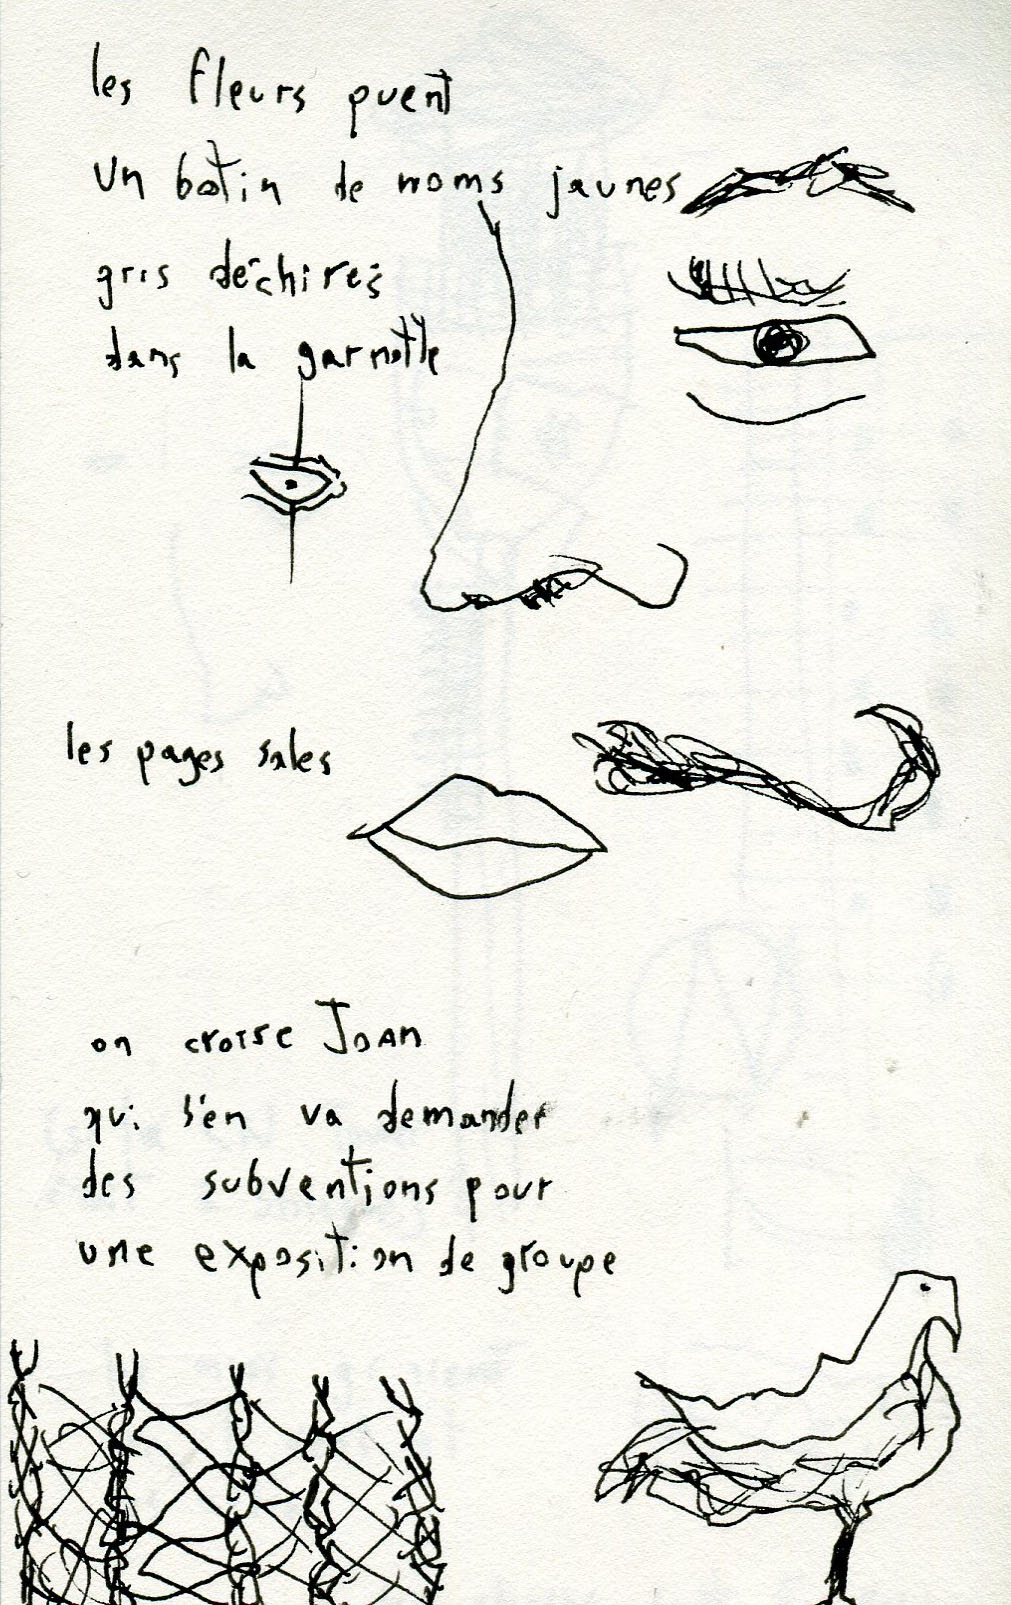 les fleurs puent
un botin de noms jaunes
gris déchirés
dans la garnotte
les pages sales
on croise Joan
qui s'en va demander
des subventions pour
une exposition de groupe